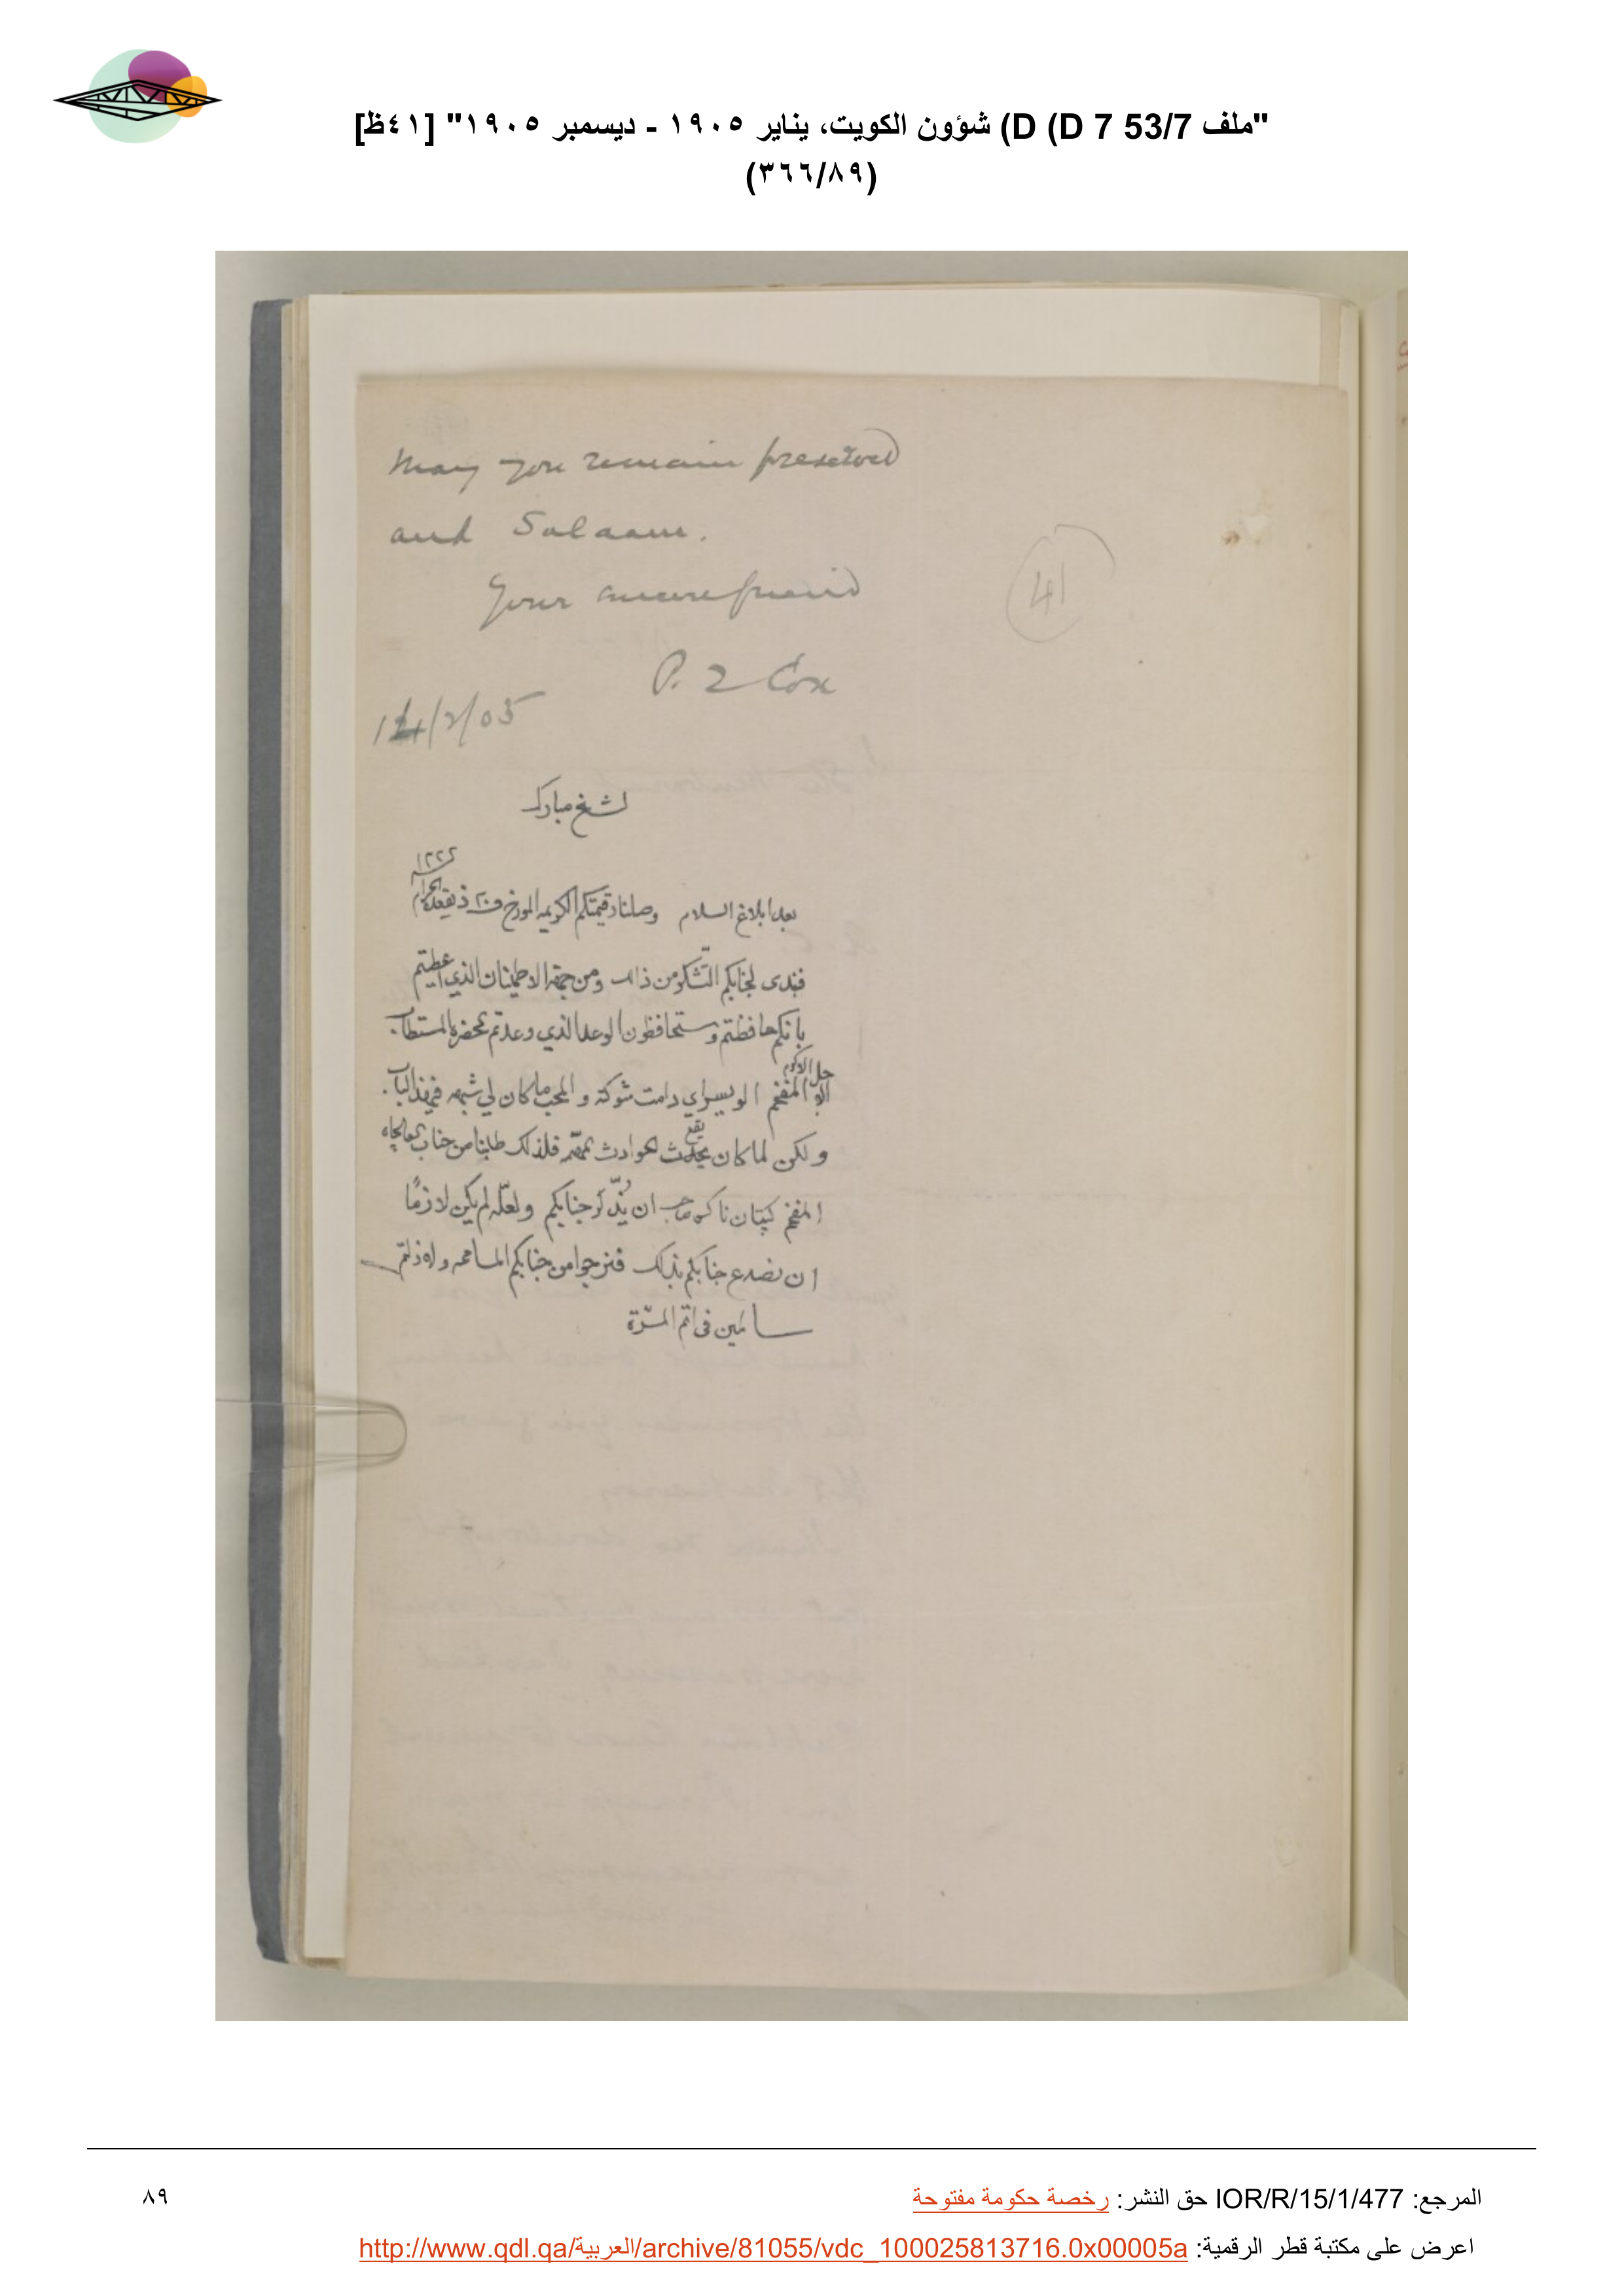 "ملف 53/7 D (D 7) شؤون الكويت، يناير ١٩٠٥ - ديسمبر ١٩٠٥" [٤١ظ]
(٣٦٦/٨٩)
May you remain preserved
and Salaam.
Your sincere friend
P. Z Cox
41
14/2/05
لشيخ مبارك
١٣٢٢
بعد ابلاغ السلام وصلنا رقيمتكم الكريمه المورخ في ٢٠ ذيقعدة الحرام
فنبدى لجنابكم التشكر من ذالك ومن جهة الاطمينان الذي اعطيتم
بانكم حافظتم وستحافظون الوعد الذي وعدتم بمحضره المستطاب
الاجل الاكرم المفخم الويسراي دامت شوكته و المحب ما كان لي شبهه في هذ الباب
ولكن لما كان يحدث يقع لحوادث مهمه فلذلك طلبنا من جناب
المفخم كپتان ناكس صاحب ان يذّكر جنابكم ولعلّه لم يكن لازمًا
ان نصدع جنابكم بذلك فنرجوا من جنابكم المسامحه ولا زلتم
سالمين في اتم المسرّة
المرجع: IOR/R/15/1/477 حق النشر: رخصة حكومة مفتوحة
٨٩
اعرض على مكتبة قطر الرقمية: http://www.qdl.qa/العربية/archive/81055/vdc_100025813716.0x00005a